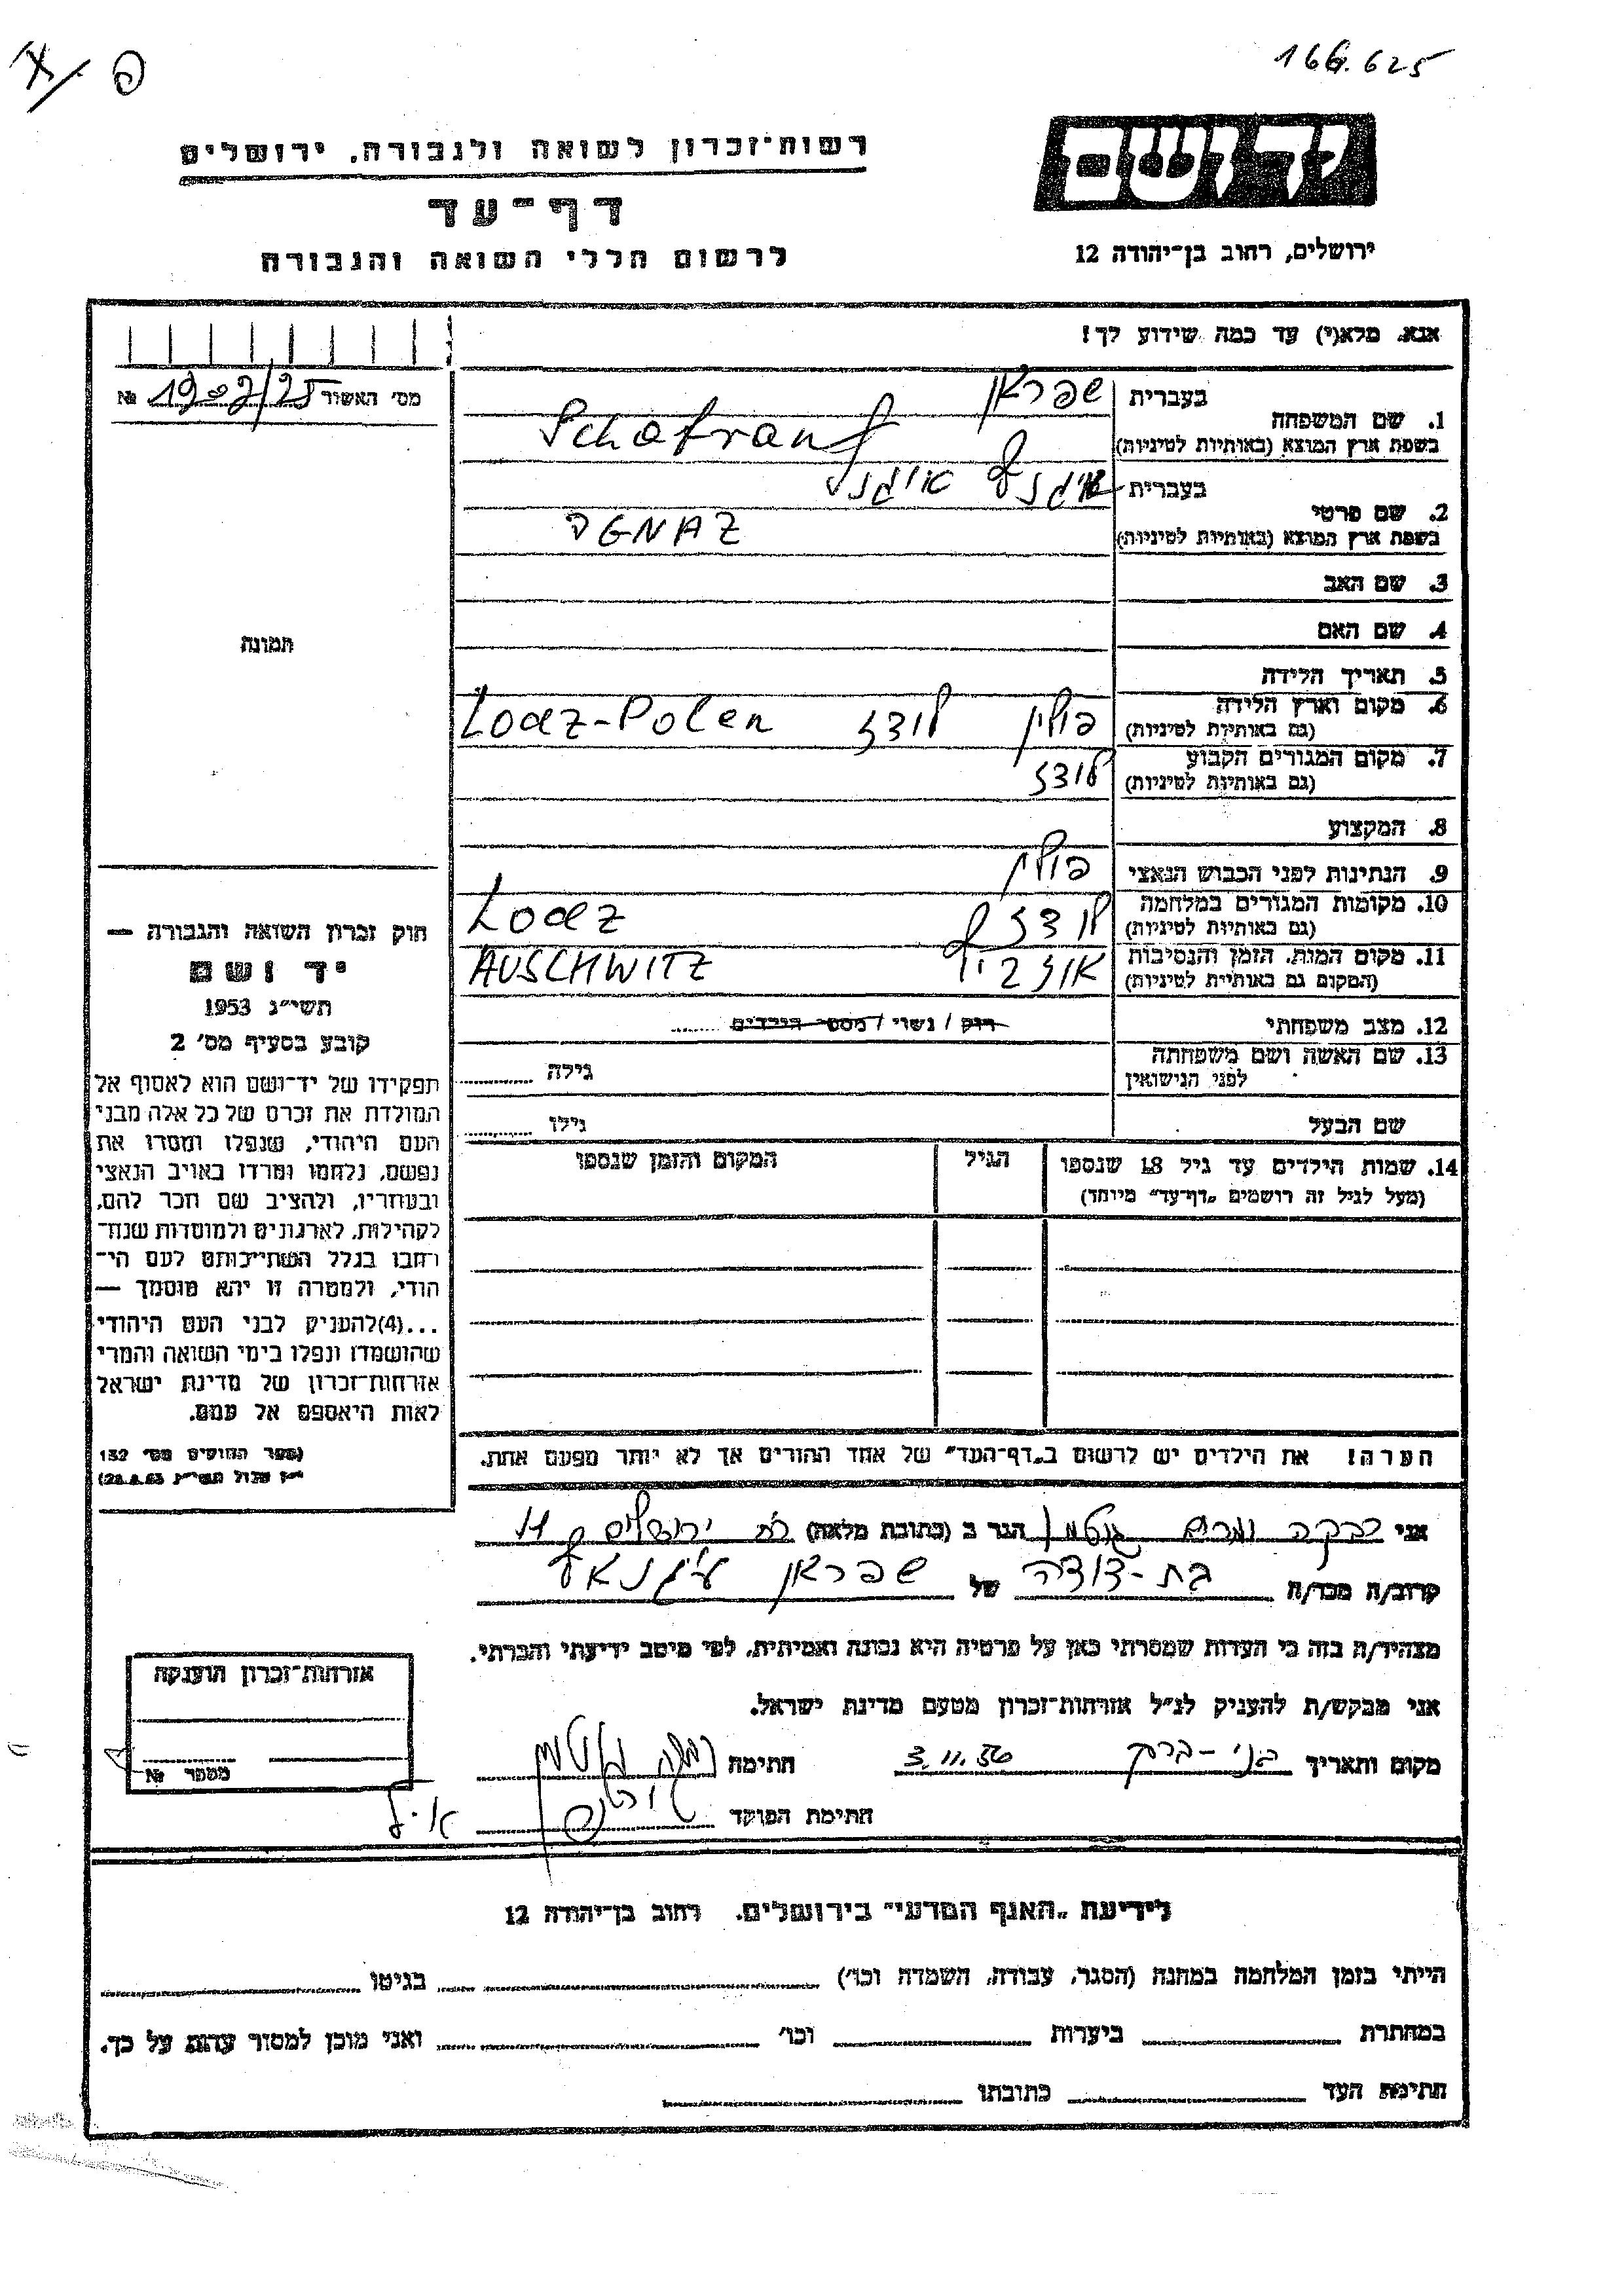 166.625
רשות־זכרון לשואה ולגבורה. ירושלים
דף־עד
לרשום חללי השואה והגבורה
יד ושם
ירושלים, רחוב בן־יהודה 12
אנא, מלא(י) עד כמה שידוע לך!
מס׳ האשור 1902/25 №
1. שם המשפחה
בעברית שפראן
בשפת ארץ המוצא (באותיות לטיניות) Schafran
2. שם פרטי
בעברית איגנץ
בשפת ארץ המוצא (באותיות לטיניות) IGNAZ
3. שם האב
4. שם האם
תמונה
5. תאריך הלידה
6. מקום וארץ הלידה פולין לודז Lodz-Polen
(גם באותיות לטיניות)
7. מקום המגורים הקבוע לודז
(גם באותיות לטיניות)
8. המקצוע
9. הנתינות לפני הכבוש הנאצי פולין
10. מקומות המגורים במלחמה לודז Lodz
(גם באותיות לטיניות)
11. מקום המות. הזמן והנסיבות AUSCHWITZ
(המקום גם באותיות לטיניות)
12. מצב משפחתי רוק / נשוי / מספר הילדים ......
13. שם האשה ושם משפחתה
לפני הנישואין גילה
שם הבעל גילו
14. שמות הילדים עד גיל 18 שנספו הגיל המקום והזמן שנספו
(מעל לגיל זה רושמים „דף־עד״ מיוחד)
הערה! את הילדים יש לרשום ב„דף־העד״ של אחד ההורים אך לא יותר מפעם אחת.
חוק זכרון השואה והגבורה —
יד ושם
תשי״ג 1953
קובע בסעיף מס׳ 2
תפקידו של יד־ושם הוא לאסוף אל
המולדת את זכרם של כל אלה מבני
העם היהודי, שנפלו ומסרו את
נפשם, נלחמו ומרדו באויב הנאצי
ובעוזריו, ולהציב שם וזכר להם,
לקהילות, לארגונים ולמוסדות שנח־
רבו בגלל השתייכותם לעם הי־
הודי, ולמטרה זו יהא מוסמך —
...(4)להעניק לבני העם היהודי
שהושמדו ונפלו בימי השואה והמרי
אזרחות־זכרון של מדינת ישראל
לאות היאספם אל עמם.
(ספר החוקים מס׳ 132
י״ז אלול תשי״ג 28.8.53)
אני רבקה ומרים גוטמן הגר ב (כתובת מלאה) ירושלים 11
קרוב/ה מכר/ה בת-דודה של שפראן איגנאץ
מצהיר/ה בזה כי העדות שמסרתי כאן על פרטיה היא נכונה ואמיתית, לפי מיטב ידיעתי והכרתי.
אני מבקש/ת להעניק לנ״ל אזרחות־זכרון מטעם מדינת ישראל.
מקום ותאריך בני-ברק 3.11.56 חתימה רבקה גוטמן
חתימת הפוקד
אזרחות־זכרון הוענקה
מספר №
לידיעת „האגף המדעי״ בירושלים. רחוב בן־יהודה 12
הייתי בזמן המלחמה במחנה (הסגר, עבודה, השמדה וכו׳) בגיטו
במחתרת ביערות וכו׳ ואני מוכן למסור עדות על כך.
חתימת העד כתובתו